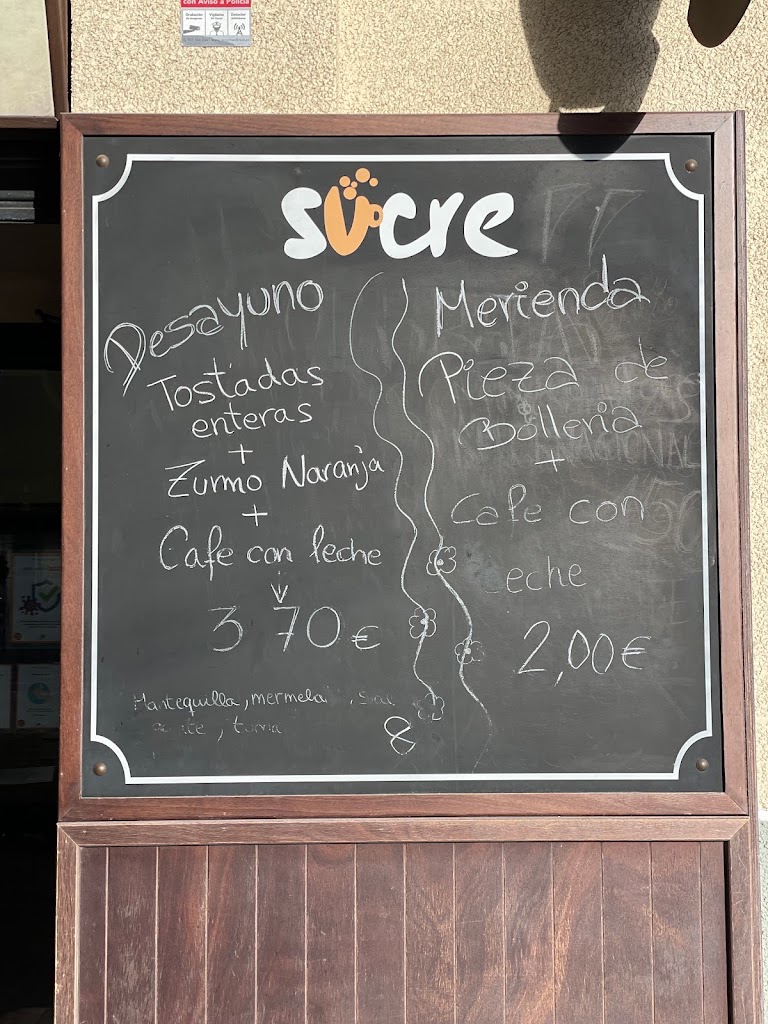 con Aviso a Policía
sucre
Desayuno
Tostadas
enteras
+
Zumo Naranja
+
Cafe con leche
3 70 €
Mantequilla, mermela
, tuma
8
Merienda
Pieza de
Bolleria
+
Cafe con
eche
2,00€